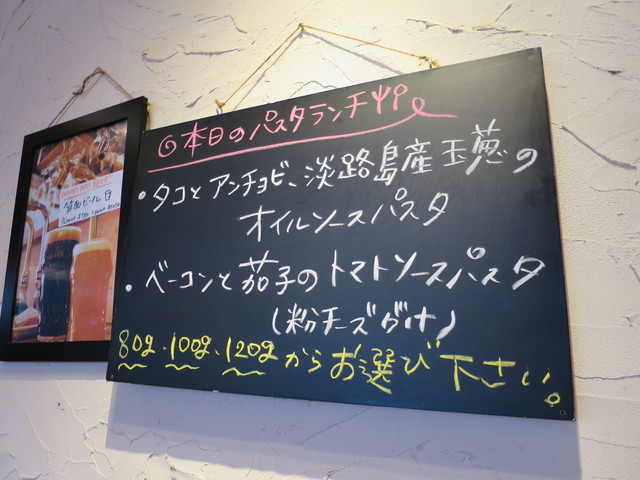 ◎本日のパスタランチ
・タコとアンチョビ、淡路島産玉葱の
オイルソースパスタ
・ベーコンと茄子のトマトソースパスタ
(粉チーズがけ)
80g・100g・120gからお選び下さい。
箕面ビール